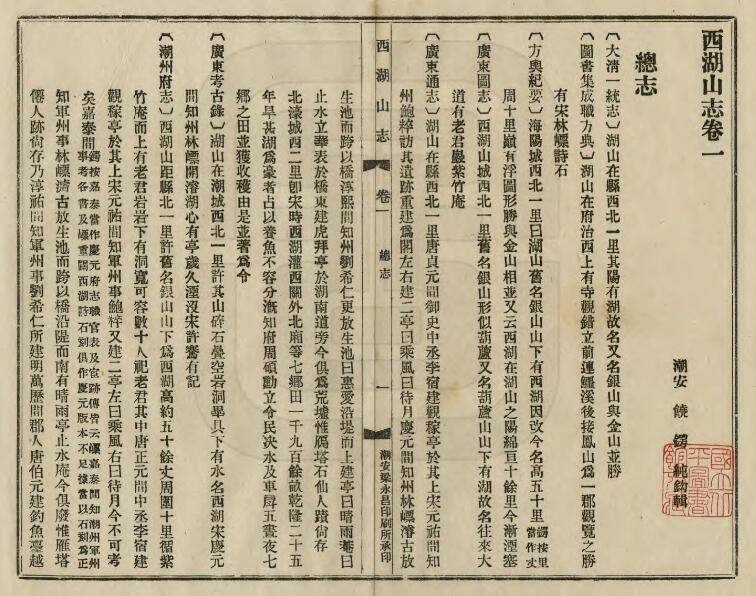 西湖山志卷一
潮安 饒鍔 純鈎輯
總志
〔大清一統志〕湖山在縣西北一里其陽有湖故名又名銀山與金山並勝
〔圖書集成職方典〕湖山在府治西上有寺觀錯立前連鱷溪後接鳳山爲一郡觀覽之勝
有宋林㟽詩石
〔方輿紀要〕海陽城西北一里曰湖山舊名銀山山下有西湖因改今名高五十里鍔按里當作丈
周十里巓有浮圖形勝與金山相並又云西湖在湖山之陽綿亘十餘里今漸湮塞
〔廣東圖志〕西湖山城西北一里舊名銀山形似葫蘆又名葫蘆山山下有湖故名往來大
道有老君巖紫竹庵
〔廣東通志〕湖山在縣西北一里唐貞元間御史中丞李宿建觀稼亭於其上宋元祐間知
州鮑粹訪其遺跡重建爲閣左右建二亭曰乘風曰待月慶元間知州林㟽濬古放
西湖山志 卷一 總志 一 潮安梁永昌印刷所承印
生池而跨以橋淳熙間知州劉希仁更放生池曰惠愛沿堤而上建亭曰晴雨菴曰
止水立華表於橋東建虎拜亭於湖南道旁今俱爲荒墟惟鴈塔石仙人蹟尙存
北濠城西二里卽宋時西湖灌西關外北廂等七鄉田一千九百餘畝乾隆二十五
年旱甚湖爲豪者占以養魚不容分漑知府周碩勳立令民决水及車戽五晝夜七
鄉之田並獲收穫由是並著爲令
〔廣東考古錄〕湖山在潮城西北一里許其山碎石疊空岩洞畢具下有水名西湖宋慶元
間知州林㟽開濬湖心有亭歲久湮沒宋許騫有記
〔潮州府志〕西湖山距縣北一里許舊名銀山山下爲西湖高約五十餘丈周圍十里循紫
竹庵而上有老君岩岩下有洞寬可容數十人祀老君其中唐正元間中丞李宿建
觀稼亭於其上宋元祐間知軍州事鮑粹又建二亭左曰乘風右曰待月今不可考
矣嘉泰間鍔按嘉泰當作慶元府志職官表及官跡傳皆云㟽嘉泰間知潮州軍州事考各書及㟽重闢西湖詩石刻俱作慶元版本不足據當以石刻爲正
知軍州事林㟽濬古放生池而跨以橋沿隄而南有晴雨亭止水庵今俱廢惟雁塔
僊人跡尙存乃淳祐間知軍州事劉希仁所建明萬歷間郡人唐伯元建釣魚臺越